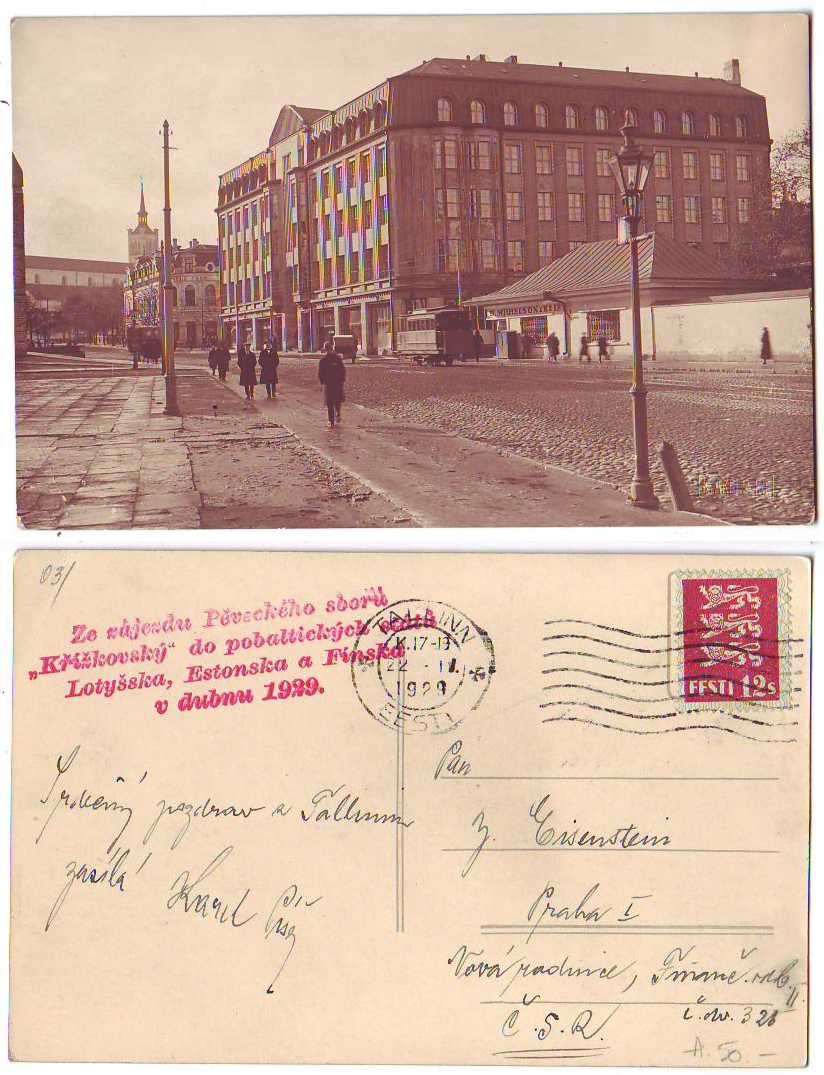 03/
Ze zájezdu Pěveckého sboru
„Křížkovský“ do pobaltických států
Lotyšska, Estonska a Finska
v dubnu 1929.
TALLINN
K.17-18
22 - IV
1929
EESTI
EESTI 12s
Srdečný pozdrav z Tallinnu
zasílá
Karel
Pan
J. Eisenstein
Praha I
Nová radnice, Finanč. odb. II.
č. dv. 326
Č. S. R.
A. 50.-